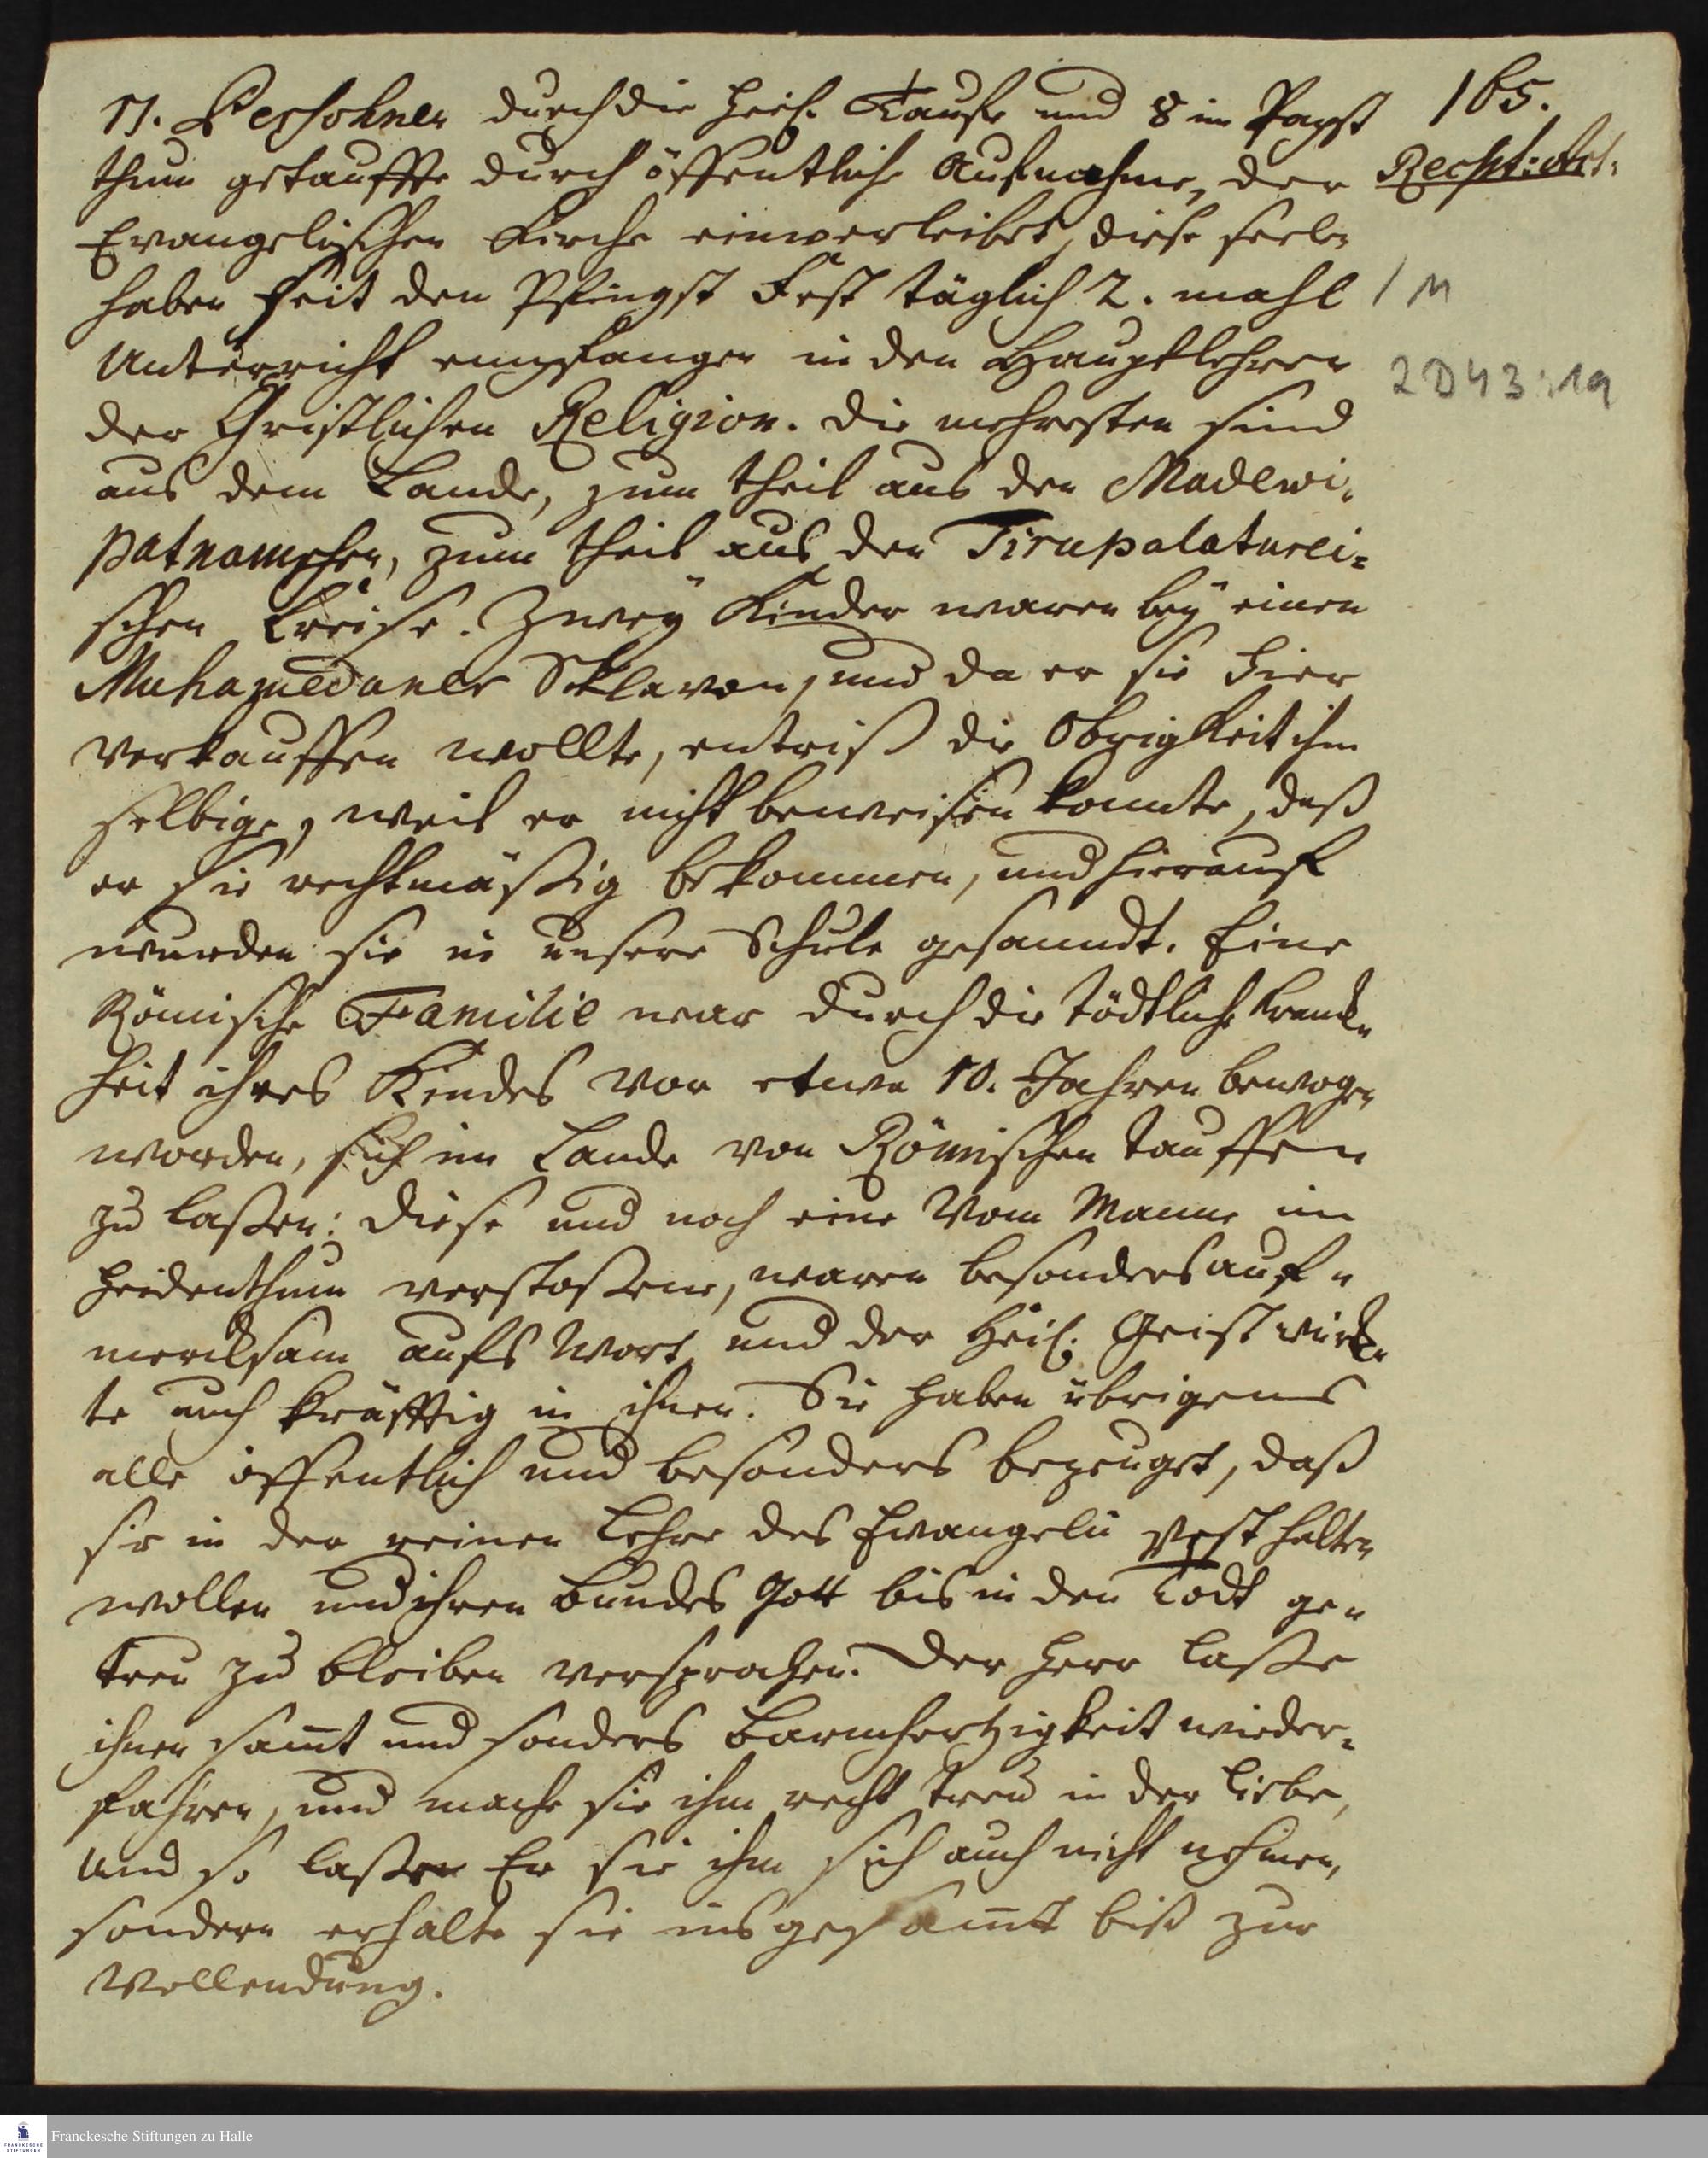 165.
11. Persohnen durch die Heil. Tauffe und 8 im Papst
thum getauffte durch öffentliche Aufnahme, der
Evangelischen Kirche einverleibet, diese Seelen
haben seit den Pfingst Fest täglich 2. mahl
Unterricht empfangen in den Hauptlehren
der Christlichen Religion. Die mehresten sind
aus dem Lande, zum theil aus den Madewi-
patnamschen, zum theil aus den Tirupalaturei-
schen Creise. Zwey Kinder waren bey einen
Muhamedaner Sklaven, und da er sie hier
verkauffen wollte, entriß die Obrigkeit ihm
selbige, weil er nicht beweisen konnte, daß
er sie rechtmäßig bekommen, und hierauf
wurden sie in unsere Schule gesanndt. Eine
Römische Familie war durch die tödtliche Kranck-
heit ihres Kindes vor etwa 10. Jahren bewogen
worden, sich im Lande von Römischen tauffen
zu laßen: diese und noch eine vom Manne im
Heidenthum verstoßene, waren besonders auf-
mercksam aufs Wort und der Heil. Geist wirck-
te auch kräfftig in ihnen. Sie haben übrigens
alle öffentlich und besonders bezeuget, daß
sie in der reinen Lehre des Evangelii vest halten
wollen und ihren Bundes Gott bis in den Todt ge-
treu zu bleiben versprochen. Der Herr laße
ihnen samt und sonders Barmhertzigkeit wieder-
fahren, und mache sie ihm recht treu in der Liebe,
und so laßen Er sie ihm sich auch nicht nehmen,
sondern erhalte sie insgesamt biß zur
Vollendung.
1 M
2 D 43 : 19
Franckesche Stiftungen zu Halle